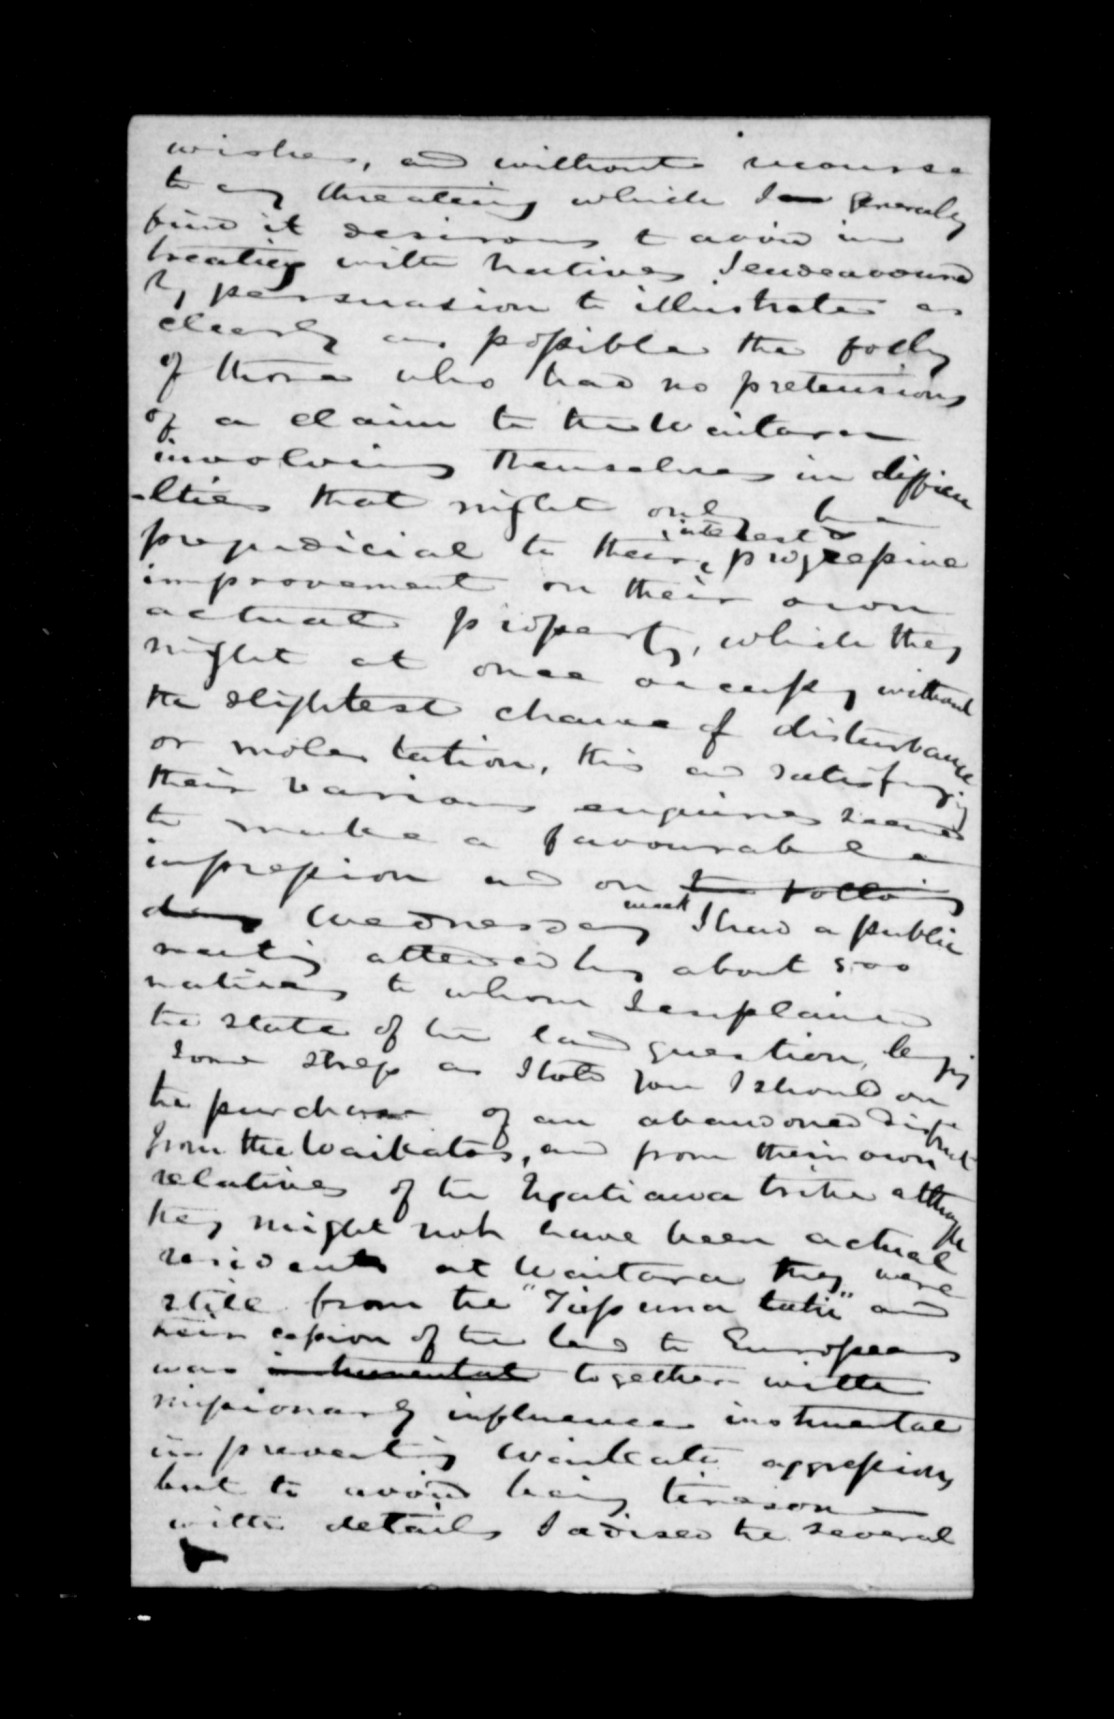 wishes, and without recourse
to any threatening which I generally
find it desirous to avoid in
treating with Natives I endeavoured
by persuasion to illustrate as
clearly as possible the folly
of those who had no pretensions
of a claim to the Waitara
involving themselves in difficu
-lties that might only be
prejudicial to their interests & progressive
improvement on their own
actual property, which they
might at once occupy without
the slightest chance of disturbance
or molestation, this and satisfying
their various enquiries seemed
to make a favourable
impression and on the following
day Wednesday week I had a public
meeting attended by about 500
natives to whom I explained
the state of the land question, laying
some stress as I told you I should on
the purchase of an abandoned district
from the Waikatos, and from their own
relatives of the Ngatiawa tribe although
they might not have been actual
residents at Waitara they were
still from the "Tupuna tahi" and
their cession of the land to Europeans
was instrumental together with
missionary influence instrumental
in preventing Waikato aggressions
but to avoid being tiresome
with details I advised the several